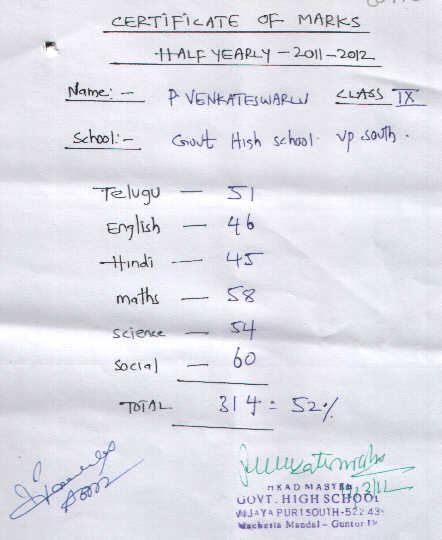 CERTIFICATE OF MARKS
HALF YEARLY - 2011-2012
Name:- P VENKATESWARLU CLASS IX
School:- Govt High school. VP south.
Telugu - 51
English - 46
Hindi - 45
maths - 58
science - 54
social - 60
TOTAL 314 = 52%
HEAD MASTER
GOVT. HIGH SCHOOL
VIJAYA PURI SOUTH-522 43
Macherla Mandal - Guntur